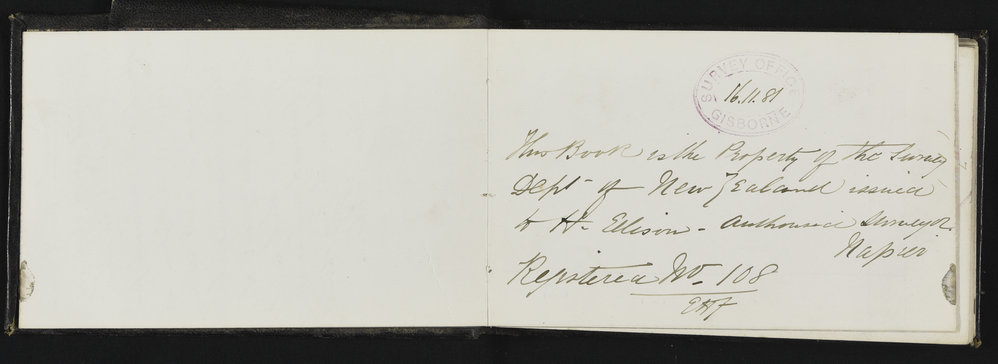 SURVEY OFFICE
16.11.81
GISBORNE
This Book is the Property of the Survey
Dept of New Zealand issued
to H. Ellison - authorised Surveyor.
Napier
Registered No. 108
EHF